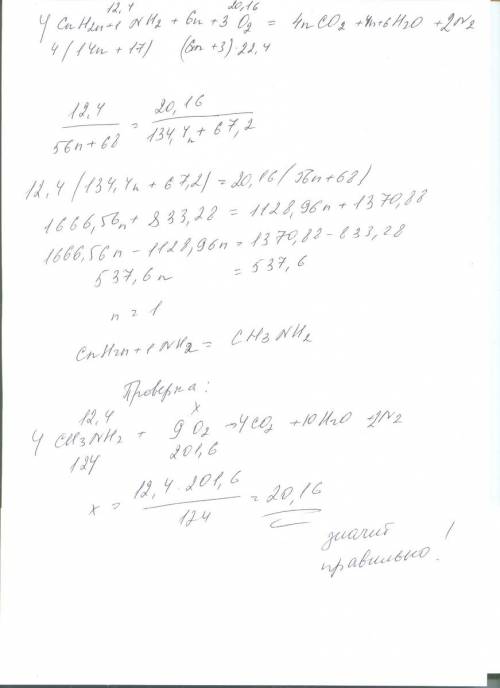 12,4 20,16
4 CnH2n+1 NH2 + 6n+3 O2 = 4nCO2 + 4n+6H2O + 2N2
4(14n+17) (6n+3)·22,4
12,4 / 56n+68 = 20,16 / 134,4n+67,2
12,4(134,4n+67,2)=20,16(56n+68)
1666,56n+833,28=1128,96n+1370,88
1666,56n-1128,96n=1370,88-833,28
537,6n =537,6
n=1
CnH2n+1NH2= CH3NH2
Проверка:
12,4 x
4 CH3NH2 + 9O2 →4CO2 +10H2O 2N2
124 201,6
x = 12,4·201,6 / 124 = 20,16
значит
правильно!